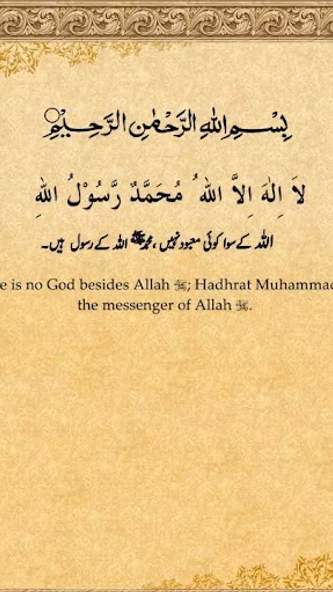 بِسْمِ اللهِ الرَّحْمٰنِ الرَّحِيْمِ
لَا اِلٰهَ اِلَّا اللهُ مُحَمَّدٌ رَّسُوْلُ اللهِ
اللہ کے سوا کوئی معبود نہیں ، محمدﷺ اللہ کے رسول ہیں۔
e is no God besides Allah ﷻ; Hadhrat Muhammad
the messenger of Allah ﷻ.